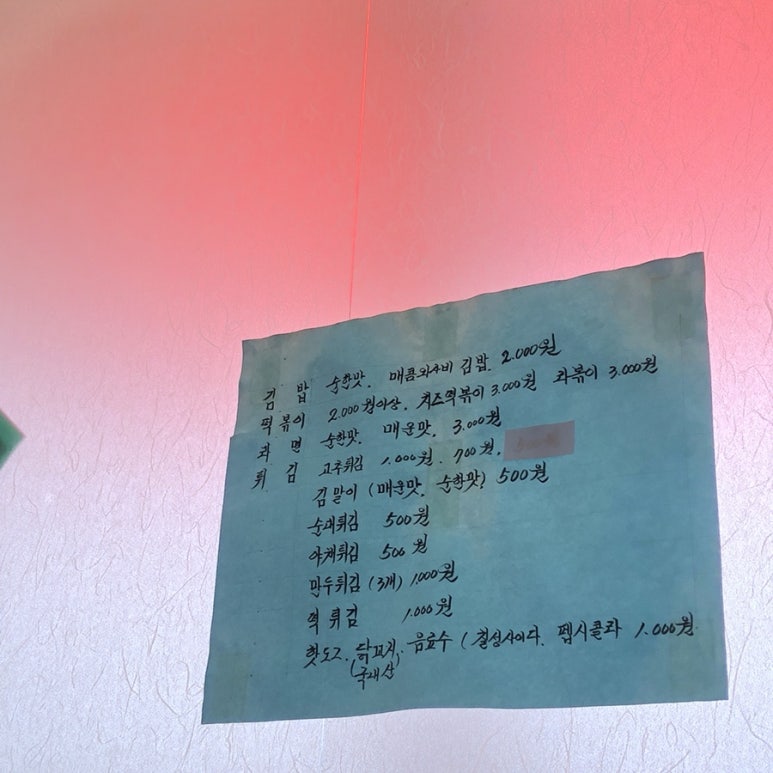 김 밥 순한맛. 매콤와사비 김밥. 2.000원
떡볶이 2.000원이상. 치즈떡볶이 3.000원 라볶이 3.000원
라 면 순한맛. 매운맛. 3.000원
튀 김 고추튀김 1.000원. 700원.
김말이 (매운맛. 순한맛) 500원
순대튀김 500원
야채튀김 500원
만두튀김 (3개) 1,000원
떡 튀김 1.000원
핫도그. 닭꼬치. 음료수 (칠성사이다. 펩시콜라 1.000원
(국내산)